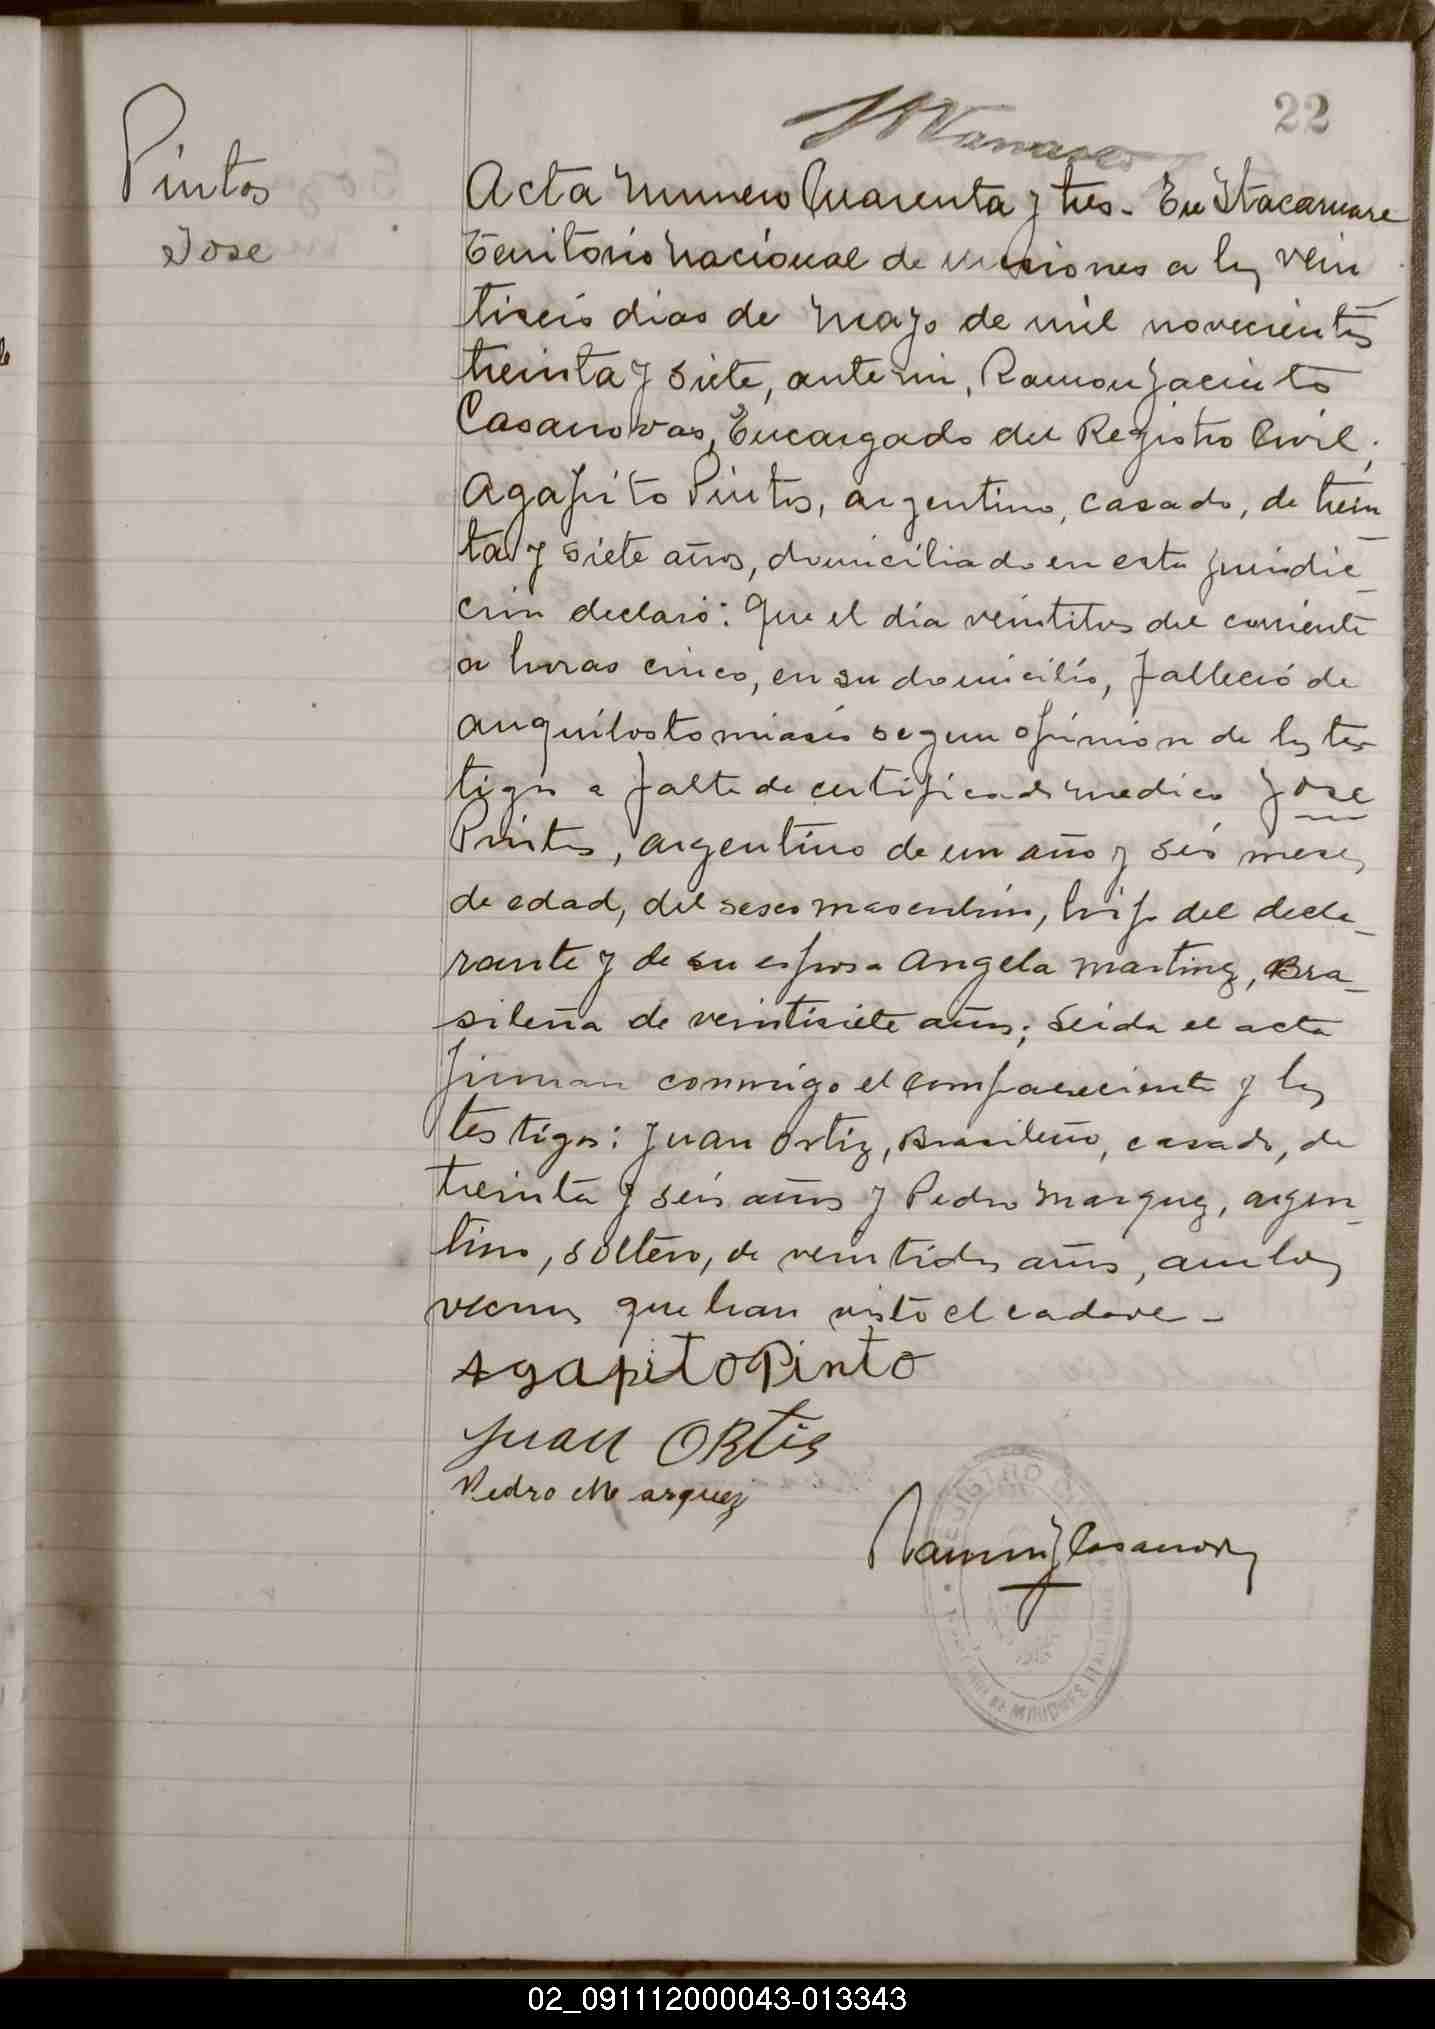 22
Pintos
Jose
Acta Numero Cuarenta y tres. En Itacaruare
Territorio Nacional de Misiones a los vein
tiseis dias de Mayo de mil novecientos
treinta y siete, ante mi, Ramon Jacinto
Casanovas, Encargado del Registro Civil;
Agapito Pintos, argentino, casado, de trein
ta y siete años, domiciliado en esta jurisdic
cion declaró: Que el día veintitres del corriente
a horas cinco, en su domicilio, falleció de
anquilostomiasis segun opinion de los tes
tigos a falta de certificado medico Jose
Pintos, argentino de un año y seis meses
de edad, del sexo masculino, hijo del decla-
rante y de su esposa Angela Martinez, Bra-
sileña de veintisiete años; Leida el acta
firman conmigo el compareciente y los
testigos: Juan Ortiz, Brasileño, casado, de
treinta y seis años y Pedro Marquez, argen-
tino, soltero, de veintidos años, ambos
vecinos que han visto el cadaver.-
AgapitoPinto
Juan ORtis
Pedro Marquez
Ramon J Casanovas
02_091112000043-013343